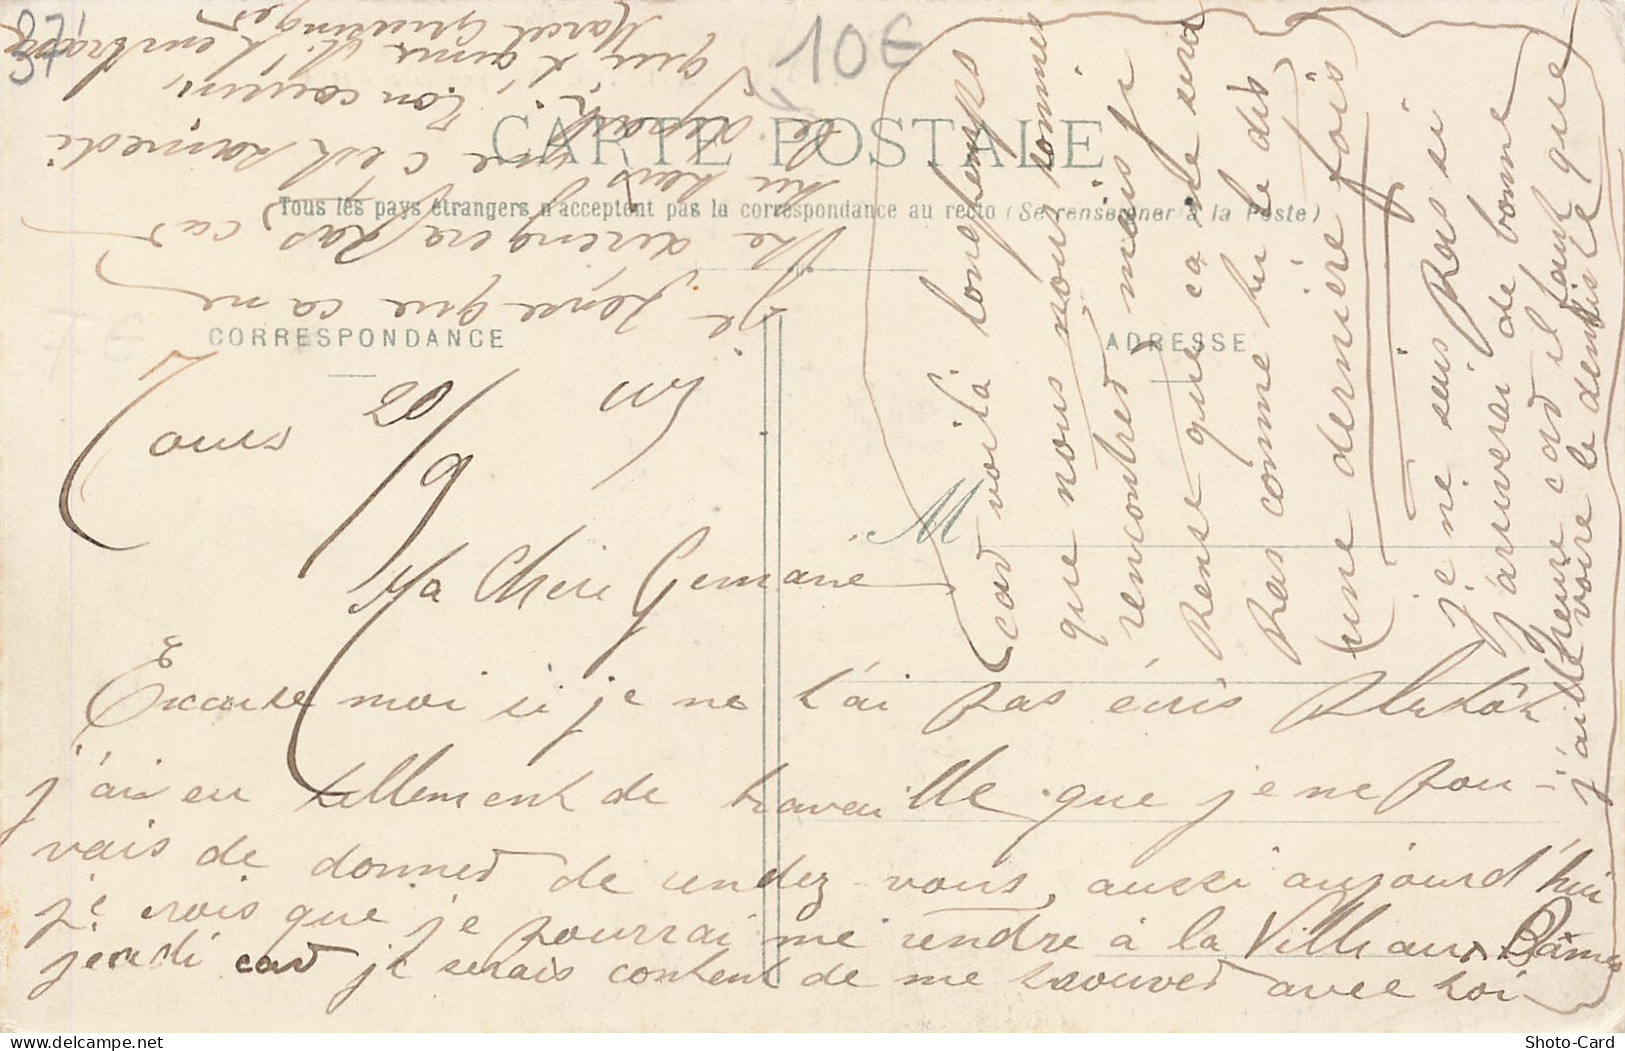 37
10€
CARTE POSTALE
Tous les pays étrangers n'acceptent pas la correspondance au recto (Se renseigner à la Poste)
CORRESPONDANCE
ADRESSE
M
Tours 20/9
Ma Chère Germaine
Excuse moi si je ne t'ai pas écris plutôt
j'ai eu tellement de travaille que je ne pou-
vais de donner de rendez-vous, aussi aujourd'hui
je crois que je pourrai me rendre à la Ville aux Dames
jeudi car je serais content de me trouver avec toi
car voilà longtemps
que nous nous sommes
rencontrer mais je
Pense que ca ne sera
Pas comme tu le dis
une dernière fois
je ne sais Pas si
j'arriverai de bonne
heure car il faut que
j'aille voire la dentiste
je Pense que ca ne
the dérengera Pas, car
tu sais que c'est samedi
le départ. Ton cousin
qui t'aime et t'embrasse
Marcel